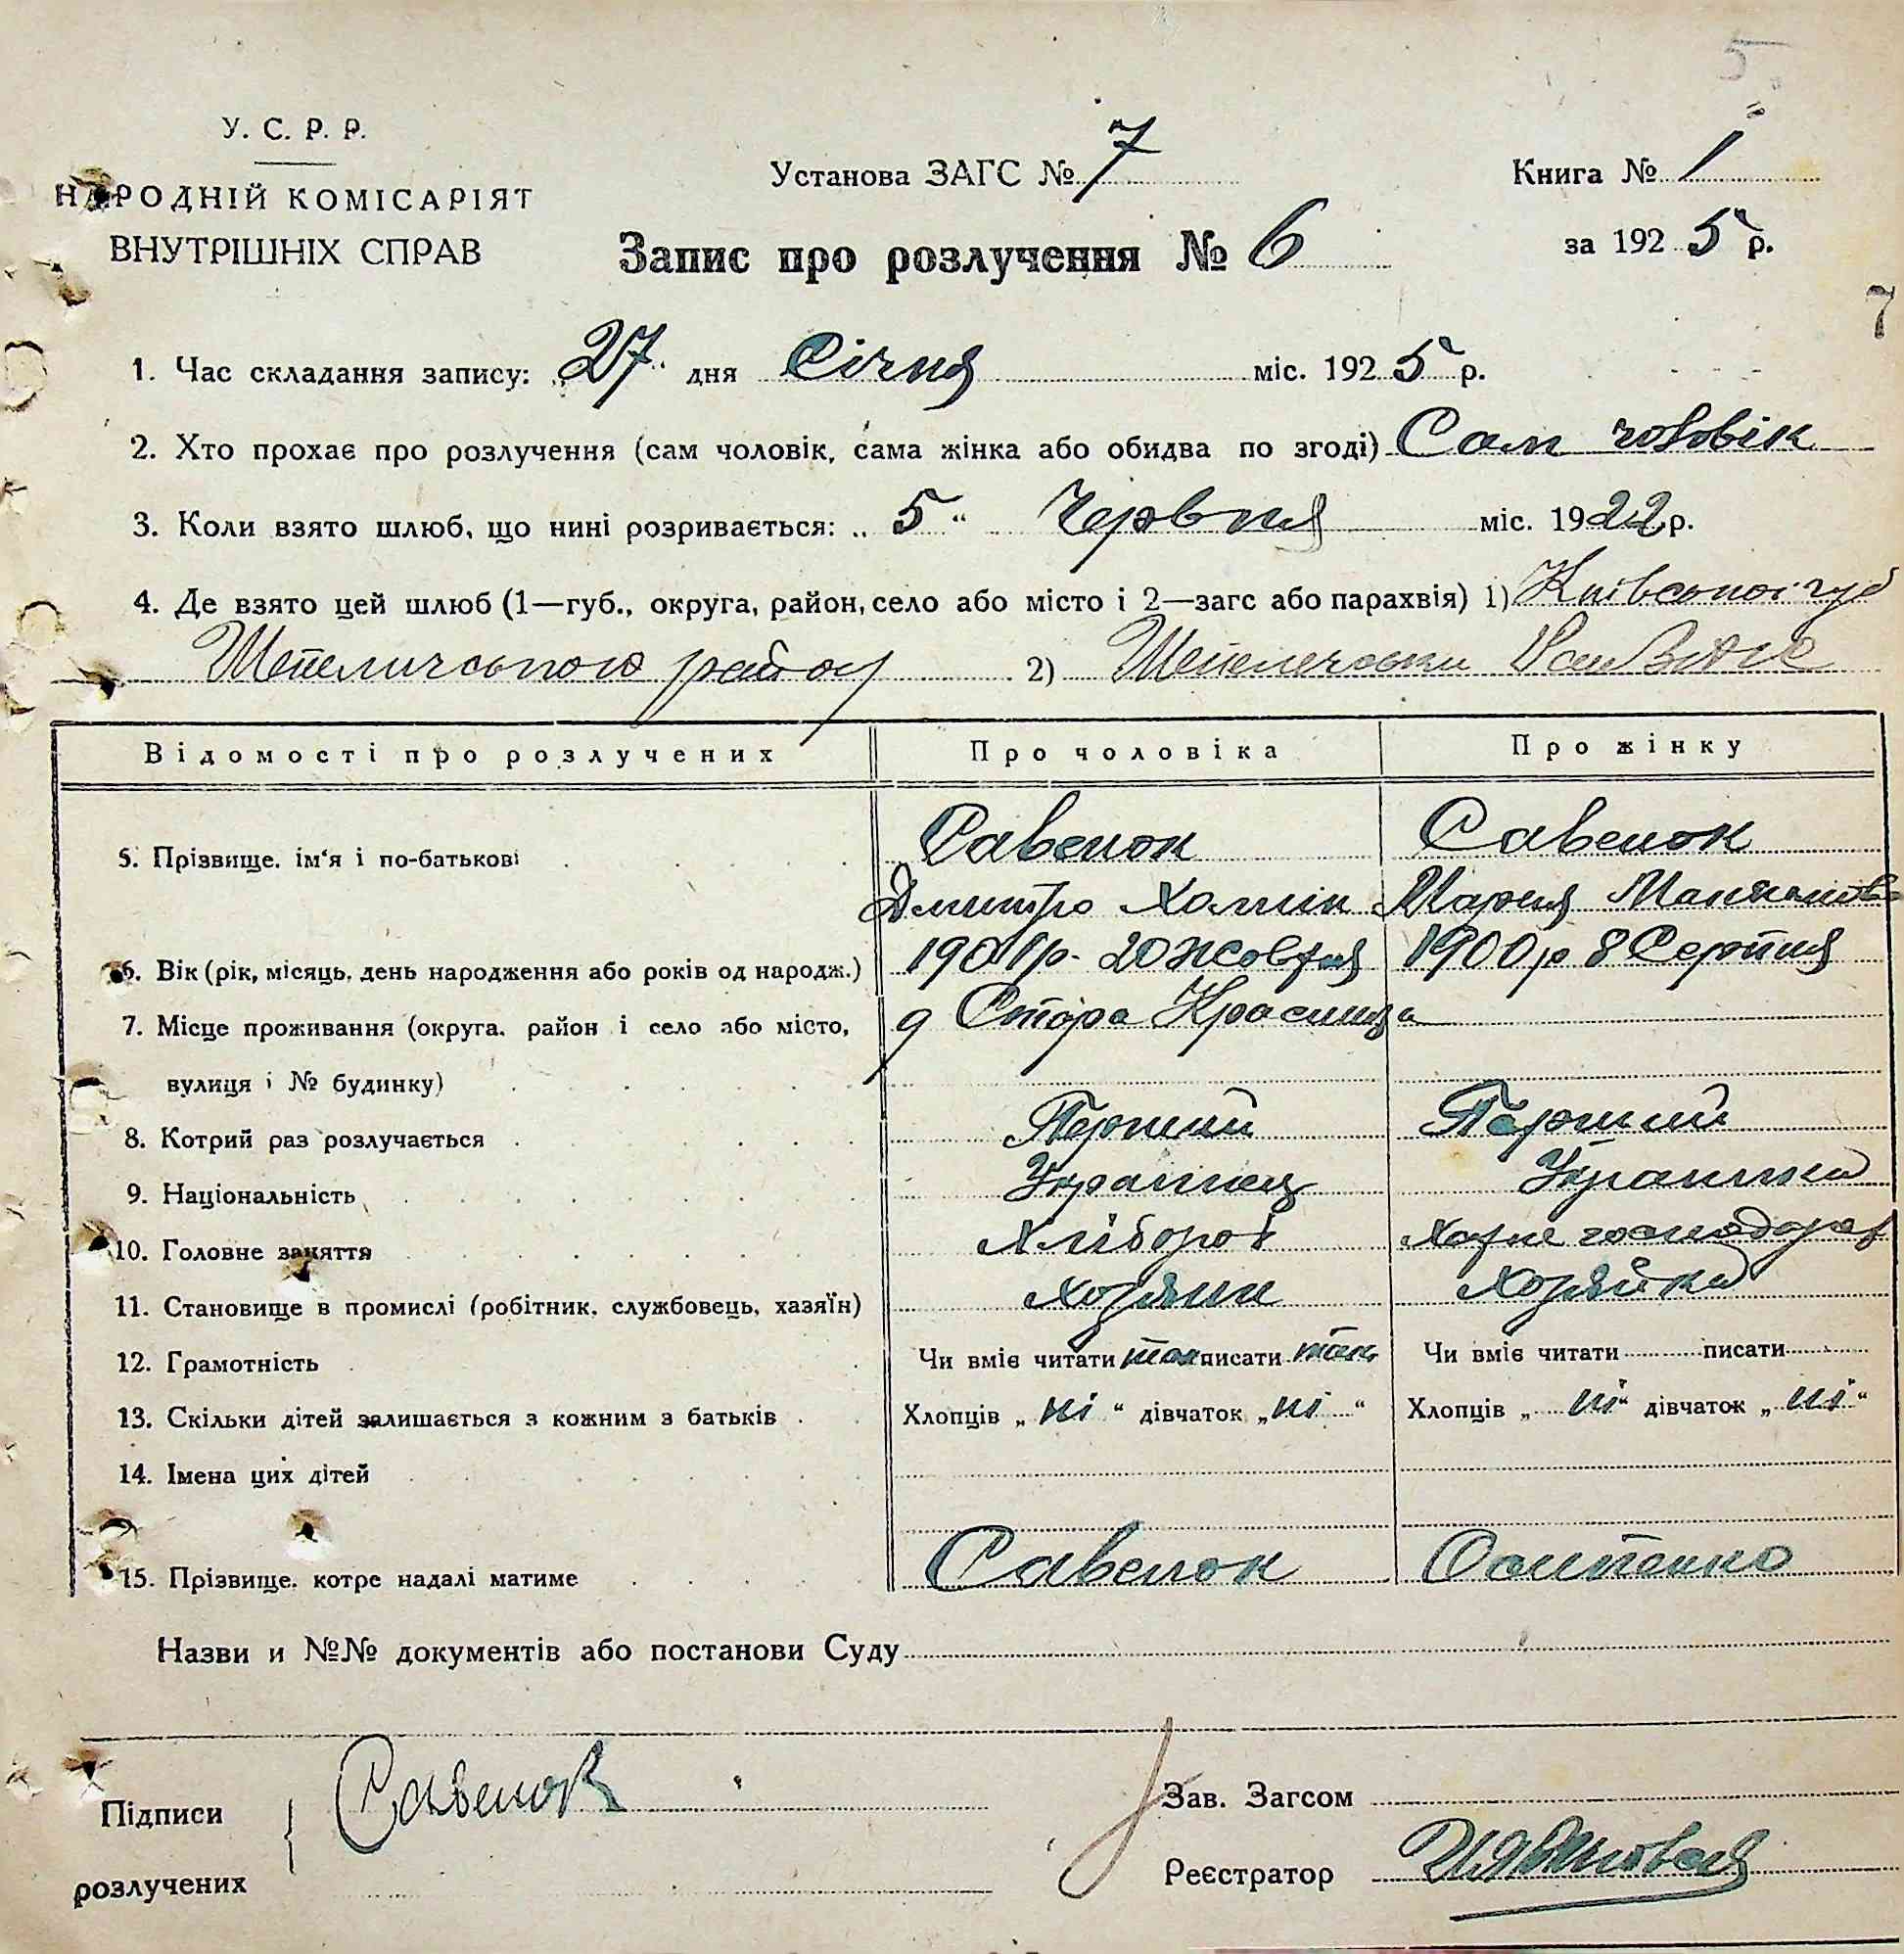 5
У. С. Р. Р.
НАРОДНІЙ КОМІСАРІЯТ
ВНУТРІШНІХ СПРАВ
Установа ЗАГС № 7
Книга № 1
Запис про розлучення № 6
за 1925 р.
7
1. Час складання запису: „27" дня Січня міс. 1925 р.
2. Хто прохає про розлучення (сам чоловік, сама жінка або обидва по згоді) Сам чоловік
3. Коли взято шлюб, що нині розривається: „5" Червня міс. 1922 р.
4. Де взято цей шлюб (1—губ., округа, район, село або місто і 2—загс або парахвія) 1) Київської губ
Шепеличського району 2) Шепелечськи
Відомості про розлучених Про чоловіка Про жінку
5. Прізвище, ім'я і по-батькові Савенок Савенок
Дмитро Хомін Мария
6. Вік (рік, місяць, день народження або років од народж.) 1901р. 20 Жовтня 1900р 8 Серпня
7. Місце проживання (округа, район і село або місто, Стара Красниця
вулиця і № будинку)
8. Котрий раз розлучається Перший Перший
9. Національність Украинец Украинка
10. Головне заняття Хлібороб Хатне господарст
11. Становище в промислі (робітник, службовець, хазяїн) Хозяин Хозяйка
12. Грамотність Чи вміє читати так писати так Чи вміє читати писати
13. Скільки дітей залишається з кожним з батьків Хлопців „ні" дівчаток „ні" Хлопців „ні" дівчаток „ні"
14. Імена цих дітей
15. Прізвище, котре надалі матиме Савенок
Назви и №№ документів або постанови Суду
Підписи
розлучених
Савенок
Зав. Загсом
Реєстратор